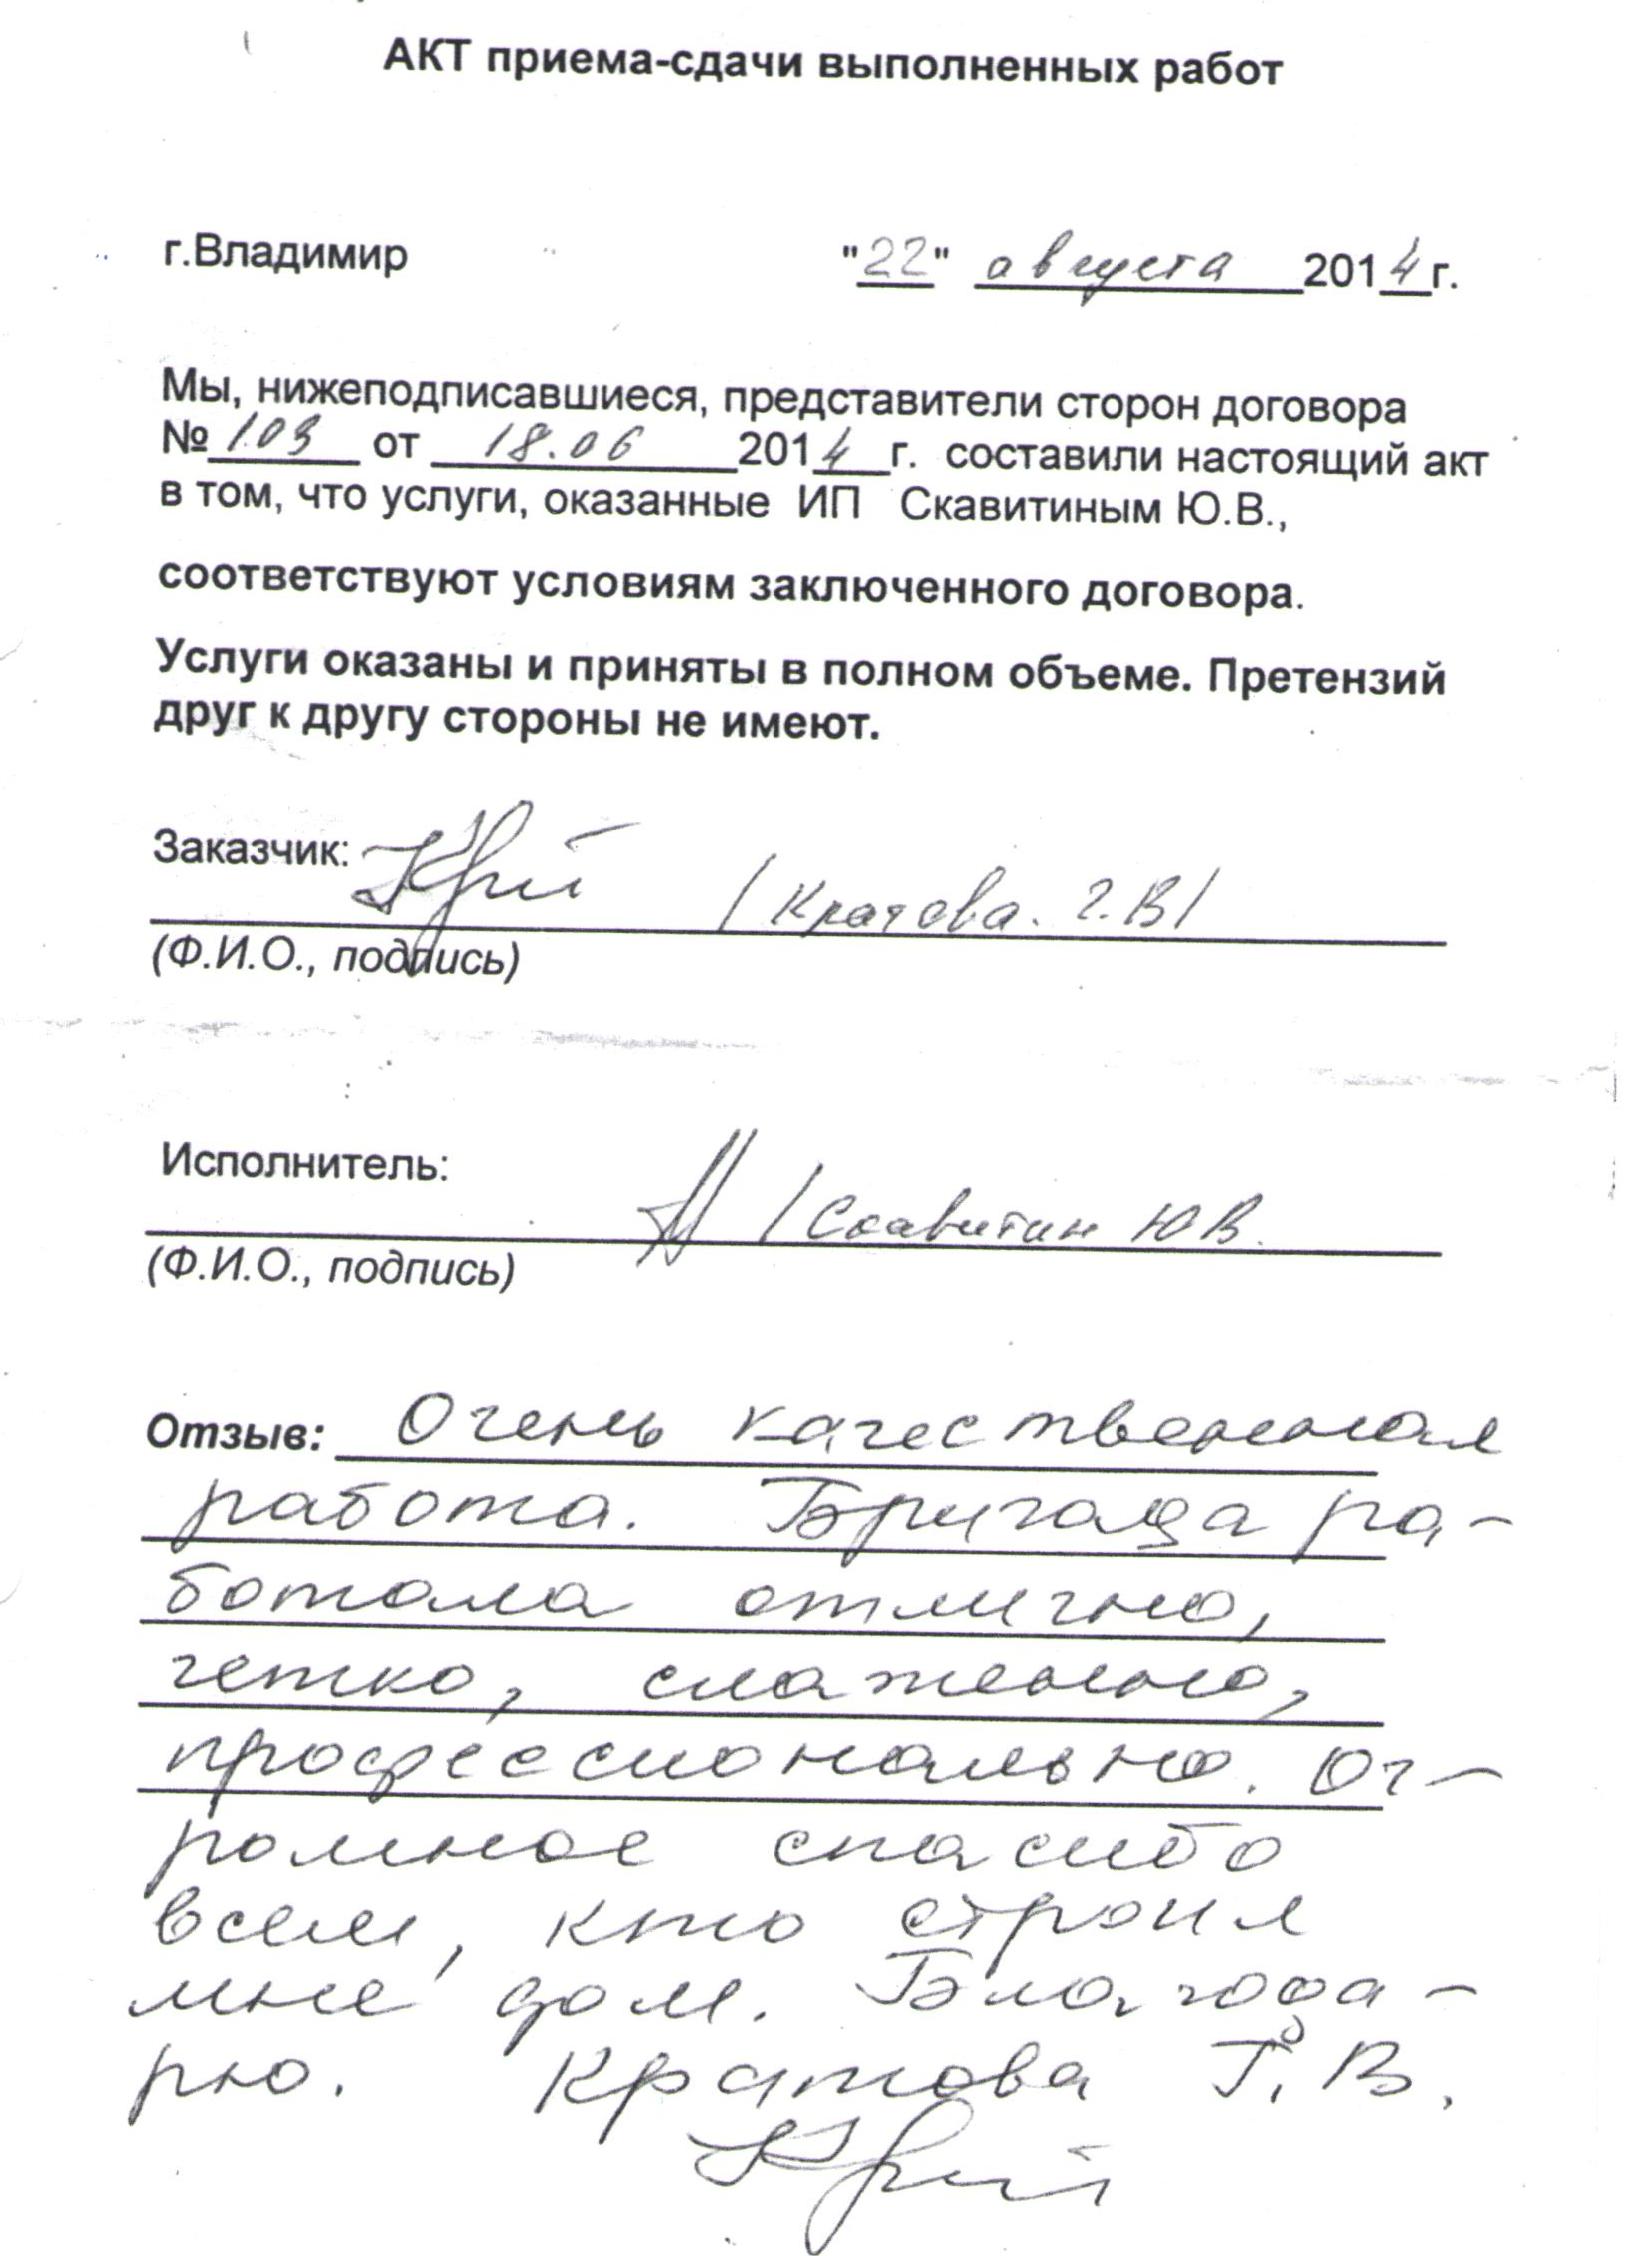 АКТ приема-сдачи выполненных работ
г.Владимир "22" августа 2014 г.
Мы, нижеподписавшиеся, представители сторон договора
№ 103 от 18.06 2014 г. составили настоящий акт
в том, что услуги, оказанные ИП Скавитиным Ю.В.,
соответствуют условиям заключенного договора.
Услуги оказаны и приняты в полном объеме. Претензий
друг к другу стороны не имеют.
Заказчик: / Кратова. Г.В/
(Ф.И.О., подпись)
Исполнитель:
/ Скавитин Ю В.
(Ф.И.О., подпись)
Отзыв: Очень качественная
работа. Бригада ра-
ботала отлично,
четко, слаженно,
профессионально. Ог-
ромное спасибо
всем, кто строил
мне дом. Благода-
рю. Кратова Г. В.